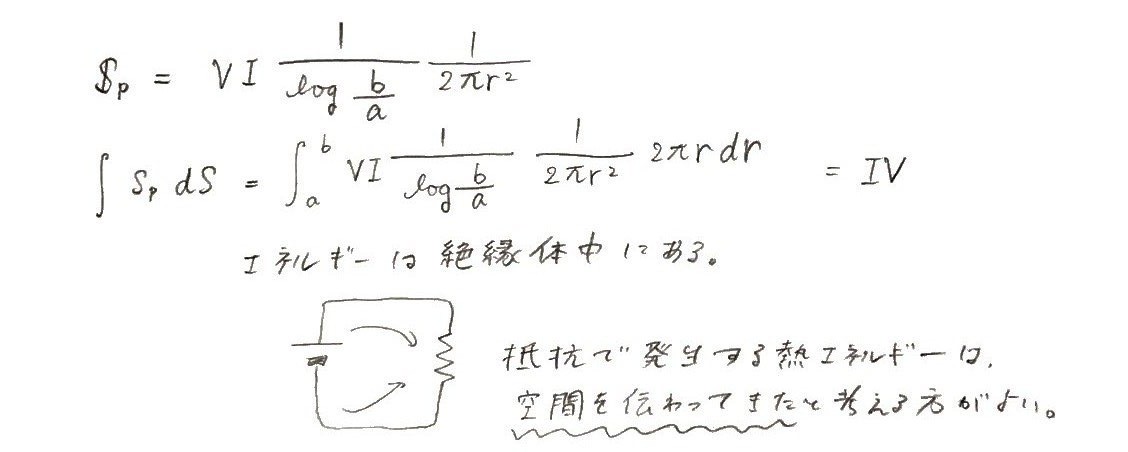 𝕊p = VI 1/(log b/a) 1/(2πr²)
∫ Sp dS = ∫ₐᵇ VI 1/(log b/a) 1/(2πr²) 2πr dr = IV
エネルギーは絶縁体中にある。
抵抗で発生する熱エネルギーは、
空間を伝わってきたと考える方がよい。